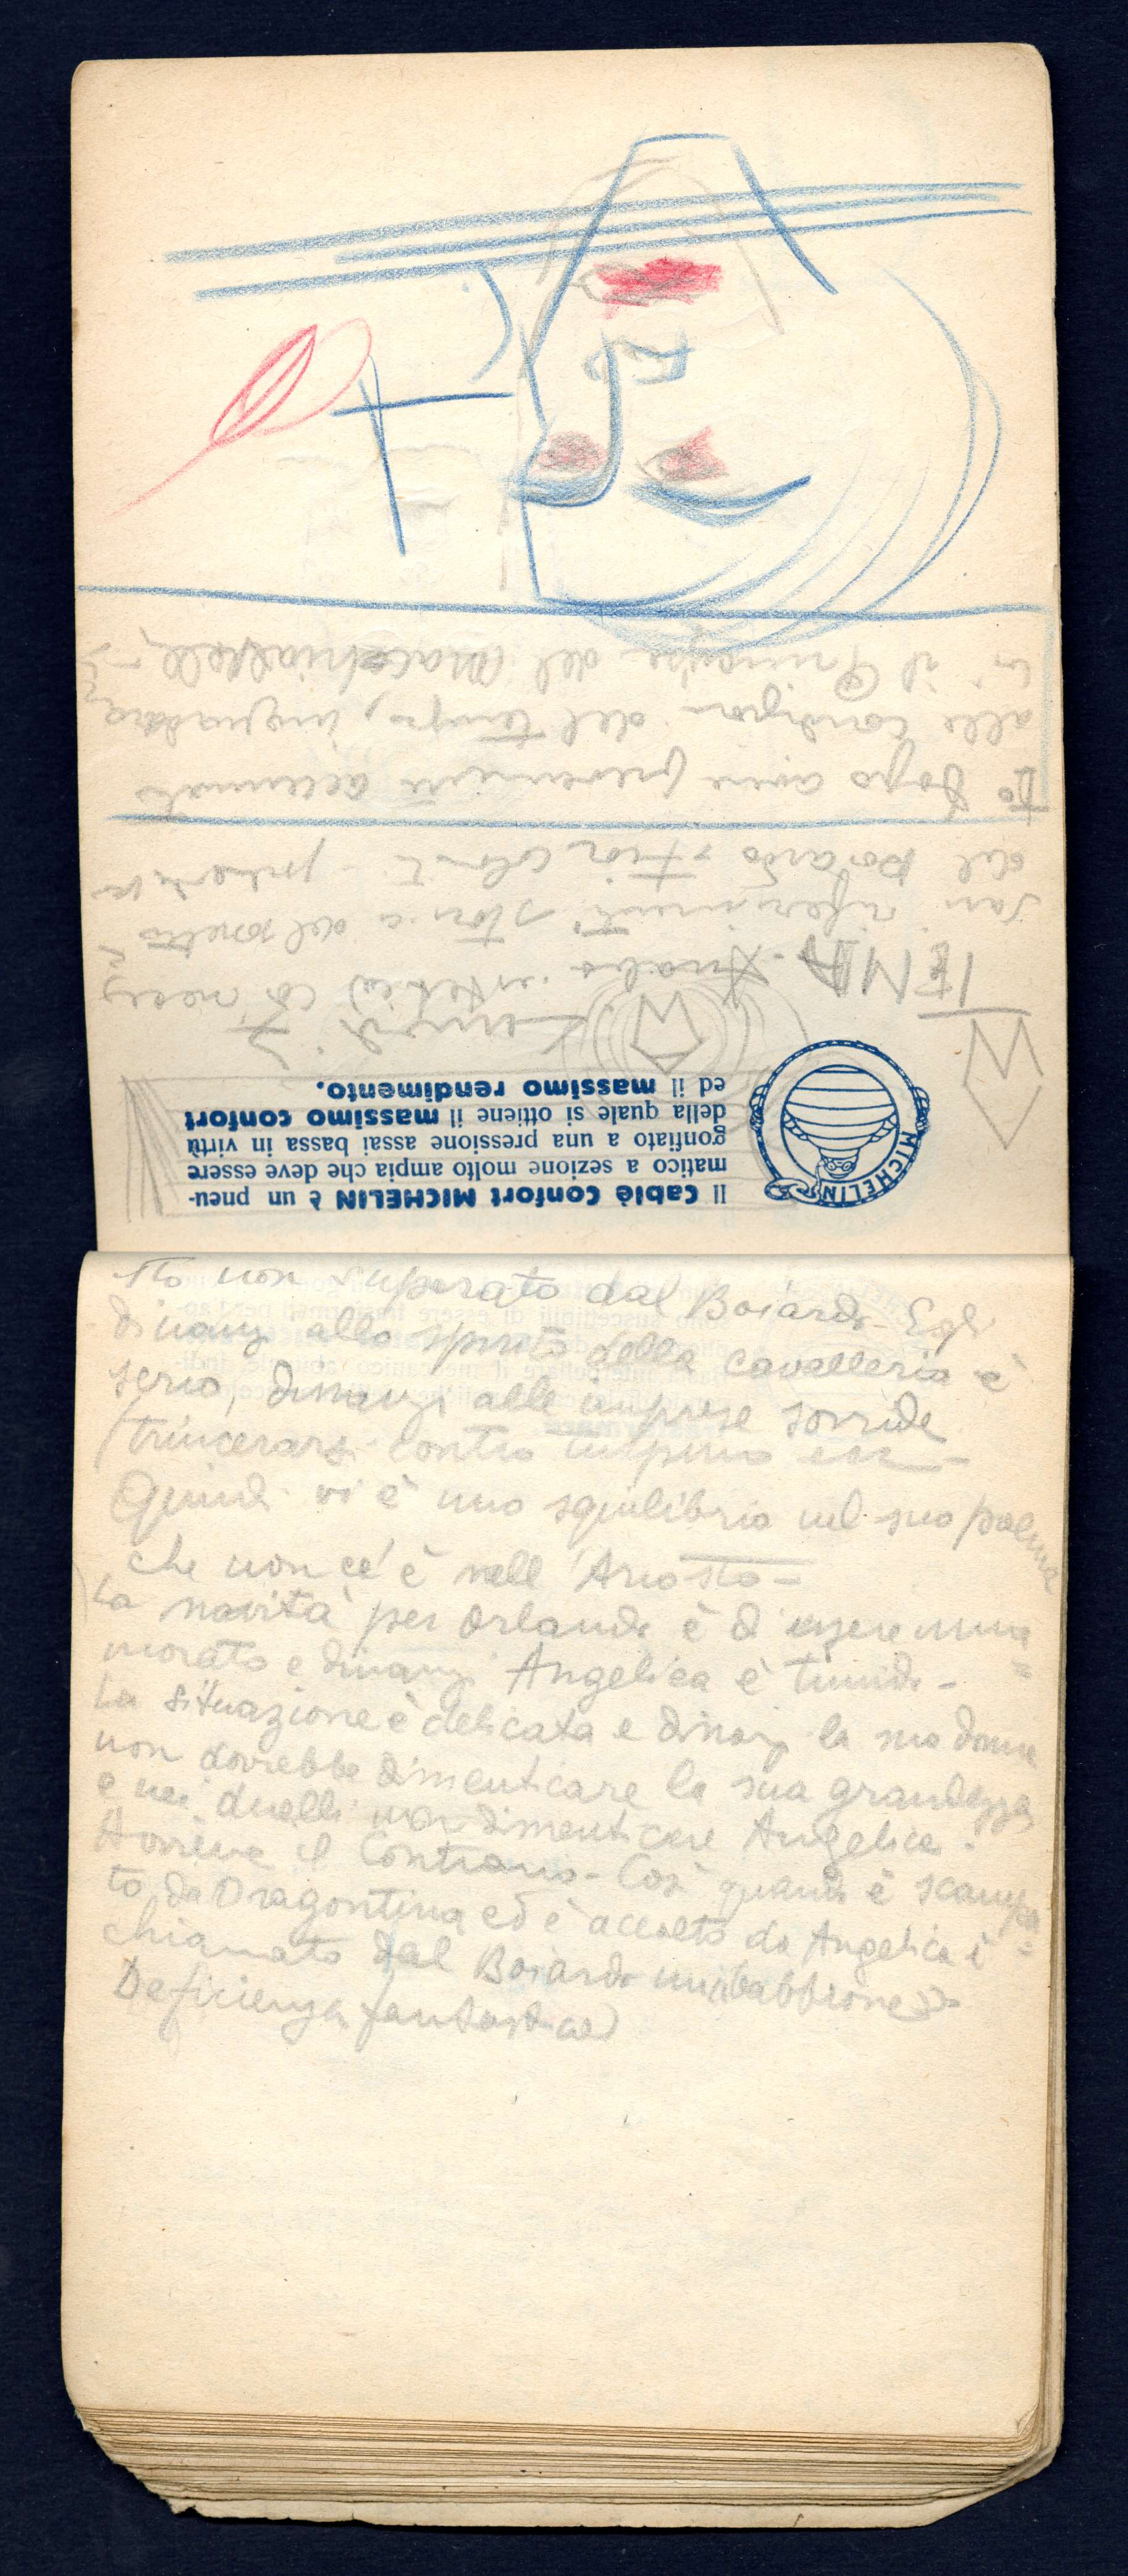 MICHELIN
Il Cablé Confort MICHELIN è un pneu-
matico a sezione molto ampia che deve essere
gonfiato a una pressione assai bassa in virtù
della quale si ottiene il massimo confort
ed il massimo rendimento.
TEMA Analisi estetica con neces
sari riferimenti storia del
del Boiardo
IIº Dopo avere accennato
alle condizioni del tempo, inquadra
il Principe del Machiavelli
sto non superato dal Boiardo - Egli
dinanzi allo spirito della cavalleria è
serio, dinanzi alle imprese sorride
(trincerarsi contro
Quindi vi è uno squilibrio nel suo poema
che non c'è è nell'Ariosto -
La novità per Orlando è d'essere inna=
morato e dinanzi Angelica è timido -
La situazione è delicata e dinanzi la sua donna
non dovrebbe dimenticare la sua grandezza
e nei duelli non dimenticare Angelica.
Avviene il contrario - Così quando è scampa=
to da Dragontina ed è accolto da Angelica è
chiamato dal Boiardo un babbione
Deficienza fantastica)